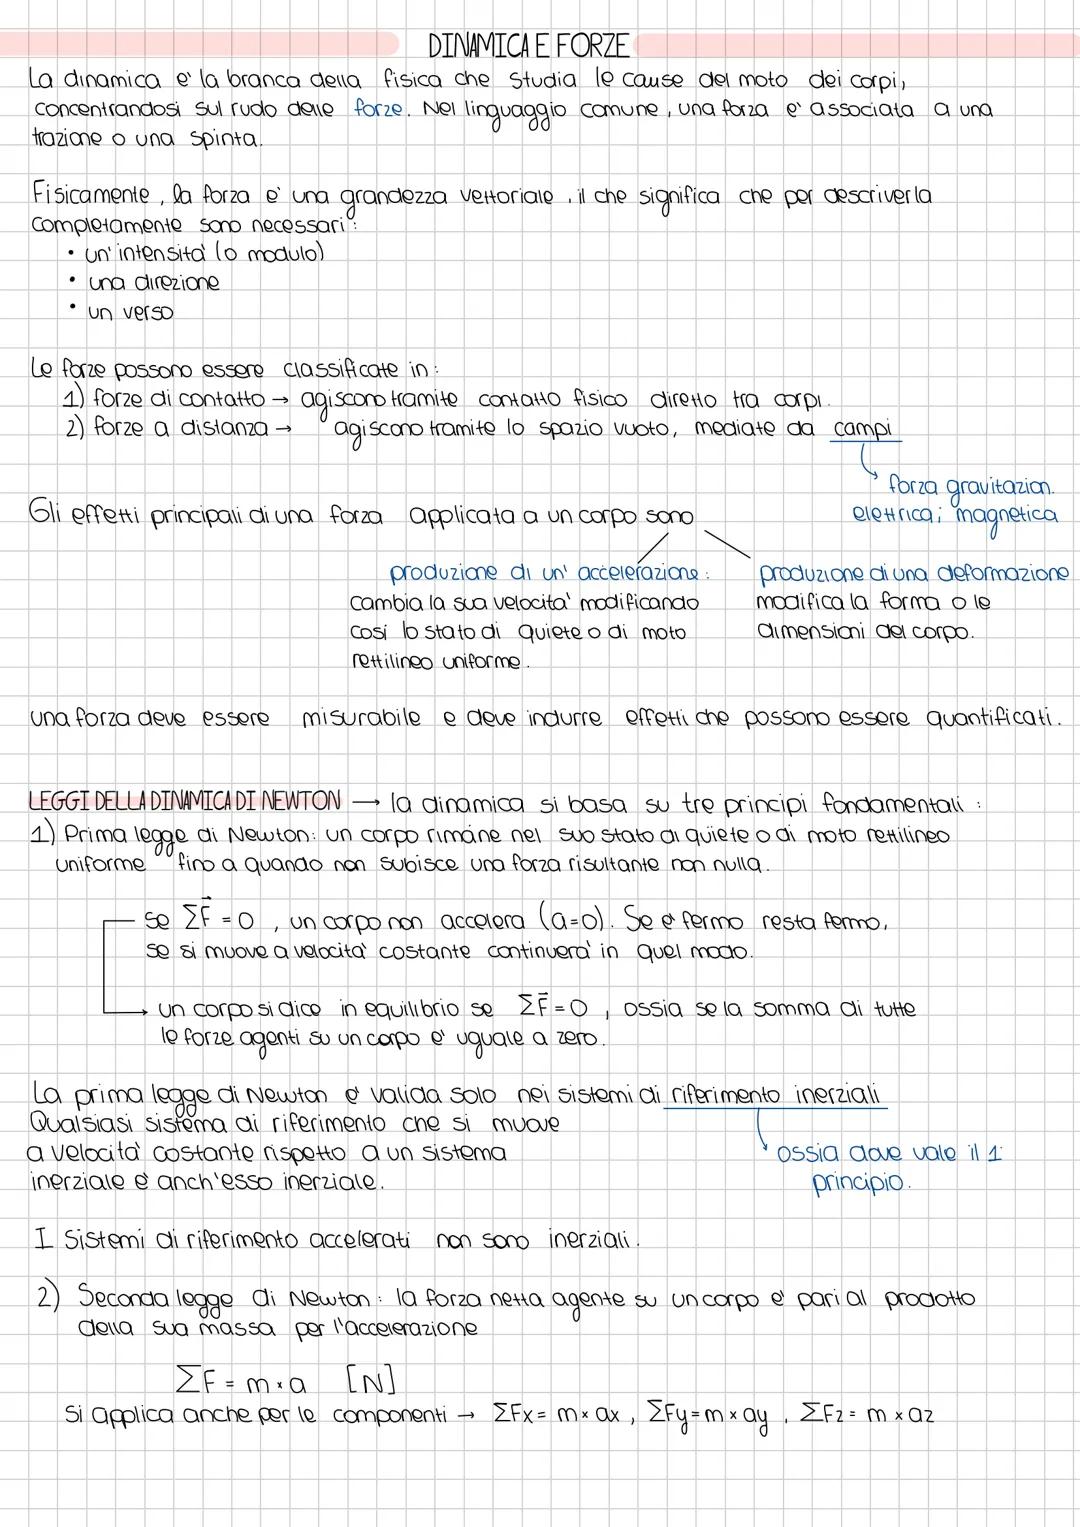 DINAMICA E FORZE
La dinamica e' la branca della fisica che studia le cause del moto dei corpi,
concentrandosi sul ruolo delle forze. Nel linguaggio comune, una forza e' associata a una
trazione o una spinta.
Fisicamente, la forza e' una grandezza vettoriale, il che significa che per descriverla
completamente sono necessari:
• un'intensita' (o modulo)
• una direzione
• un verso
Le forze possono essere classificate in:
1) forze di contatto → agiscono tramite contatto fisico diretto tra corpi.
2) forze a distanza → agiscono tramite lo spazio vuoto, mediate da campi
forza gravitazion.
elettrica; magnetica
Gli effetti principali di una forza applicata a un corpo sono
produzione di un' accelerazione:
cambia la sua velocita' modificando
così lo stato di quiete o di moto
rettilineo uniforme.
produzione di una deformazione
modifica la forma o le
dimensioni del corpo.
una forza deve essere misurabile e deve indurre effetti che possono essere quantificati.
LEGGI DELLA DINAMICA DI NEWTON → la dinamica si basa su tre principi fondamentali:
1) Prima legge di Newton: un corpo rimane nel suo stato di quiete o di moto rettilineo
uniforme fino a quando non subisce una forza risultante non nulla.
se ΣF⃗ = 0, un corpo non accelera (a=0). Se e' fermo resta fermo,
se si muove a velocita' costante continuera' in quel modo.
un corpo si dice in equilibrio se ΣF⃗ = 0, ossia se la somma di tutte
le forze agenti su un corpo e' uguale a zero.
La prima legge di Newton e' valida solo nei sistemi di riferimento inerziali
Qualsiasi sistema di riferimento che si muove
a velocita' costante rispetto a un sistema
inerziale e' anch'esso inerziale.
ossia dove vale il 1°
principio.
I sistemi di riferimento accelerati non sono inerziali.
2) Seconda legge di Newton: la forza netta agente su un corpo e' pari al prodotto
della sua massa per l'accelerazione
ΣF = m × a [N]
Si applica anche per le componenti → ΣFx = m × ax, ΣFy = m × ay, ΣFz = m × az